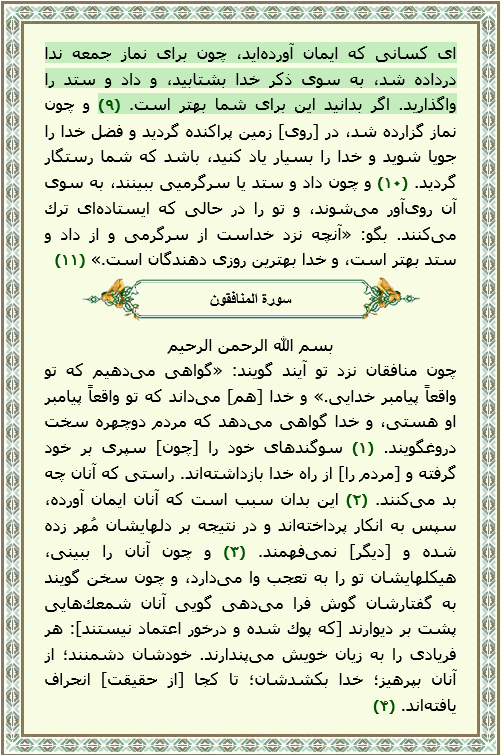 ای کسانی که ایمان آورده‌اید، چون برای نماز جمعه ندا
درداده شد، به سوی ذکر خدا بشتابید، و داد و ستد را
واگذارید. اگر بدانید این برای شما بهتر است. (۹) و چون
نماز گزارده شد، در [روی] زمین پراکنده گردید و فضل خدا را
جویا شوید و خدا را بسیار یاد کنید، باشد که شما رستگار
گردید. (۱۰) و چون داد و ستد یا سرگرمیی ببینند، به سوی
آن روی‌آور می‌شوند، و تو را در حالی که ایستاده‌ای ترك
می‌کنند. بگو: «آنچه نزد خداست از سرگرمی و از داد و
ستد بهتر است، و خدا بهترین روزی دهندگان است.» (۱۱)
سورة المنافقون
بسم الله الرحمن الرحیم
چون منافقان نزد تو آیند گویند: «گواهی می‌دهیم که تو
واقعاً پیامبر خدایی.» و خدا [هم] می‌داند که تو واقعاً پیامبر
او هستی، و خدا گواهی می‌دهد که مردم دوچهره سخت
دروغگویند. (۱) سوگندهای خود را [چون] سپری بر خود
گرفته و [مردم را] از راه خدا بازداشته‌اند. راستی که آنان چه
بد می‌کنند. (۲) این بدان سبب است که آنان ایمان آورده،
سپس به انکار پرداخته‌اند و در نتیجه بر دلهایشان مُهر زده
شده و [دیگر] نمی‌فهمند. (۳) و چون آنان را ببینی،
هیکلهایشان تو را به تعجب وا می‌دارد، و چون سخن گویند
به گفتارشان گوش فرا می‌دهی گویی آنان شمعك‌هایی
پشت بر دیوارند [که پوك شده و درخور اعتماد نیستند]: هر
فریادی را به زیان خویش می‌پندارند. خودشان دشمنند؛ از
آنان بپرهیز؛ خدا بکشدشان؛ تا کجا [از حقیقت] انحراف
یافته‌اند. (۴)